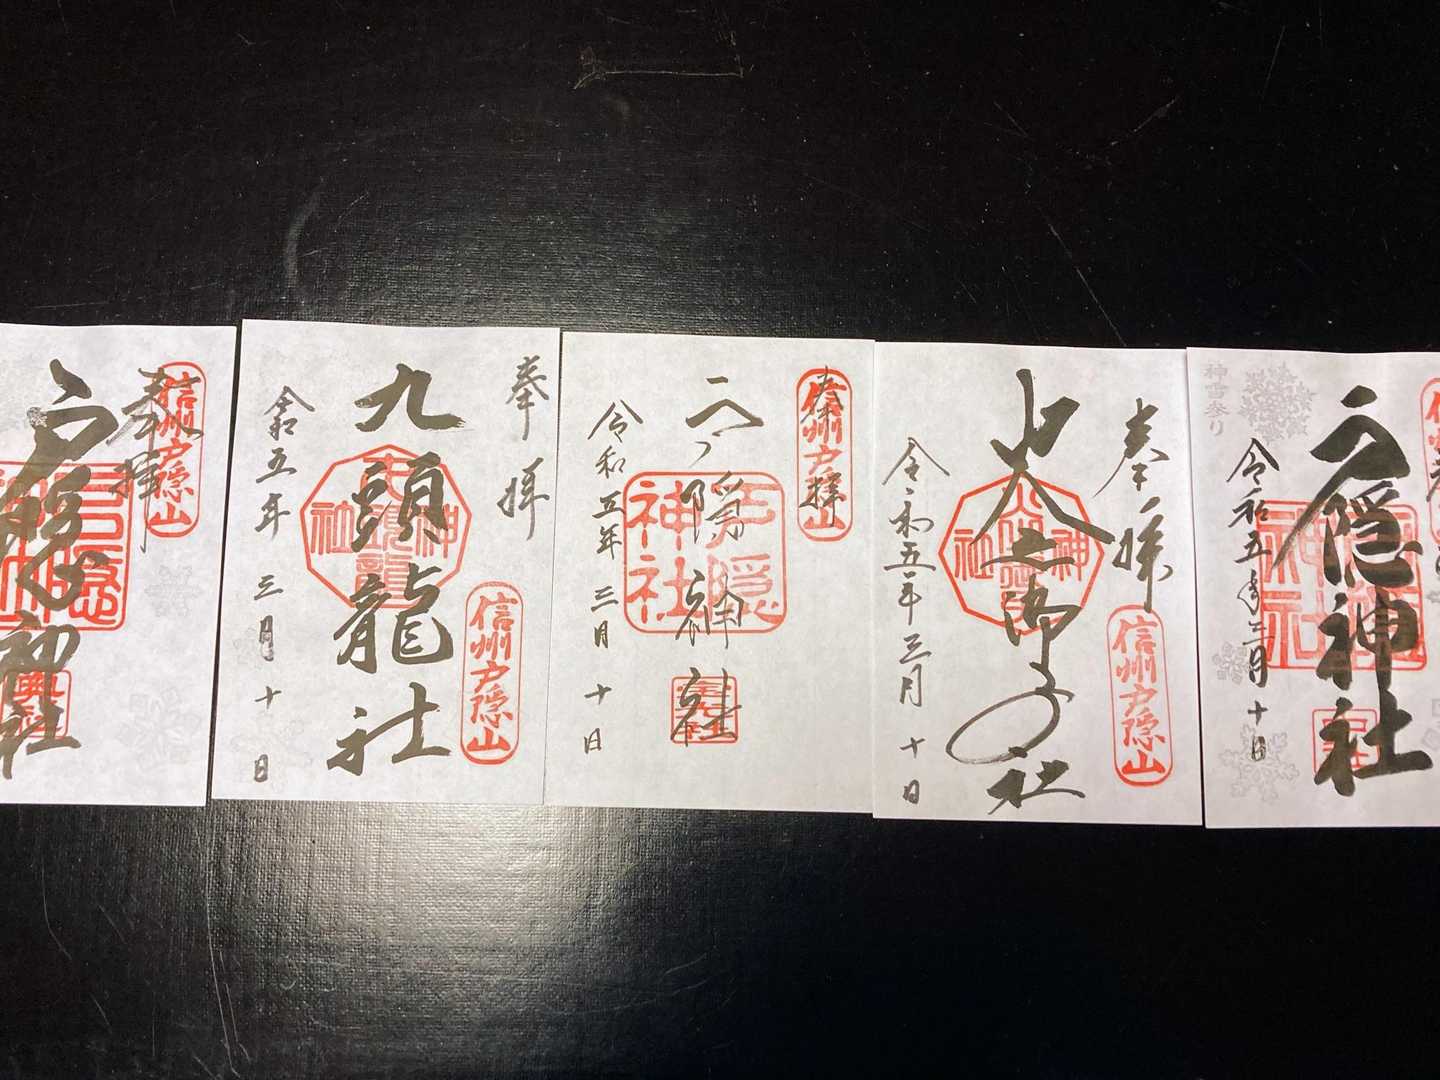 奉拝
信州戸隠山
戸隠神社
戸隠神社
奥社
奉拝
九頭龍社
九頭龍神社
信州戸隠山
令和五年 三月 十日
奉拝
信州戸隠山
戸隠神社
戸隠神社
宝光社
令和五年 三月 十日
奉拝
火之御子社
信州戸隠山
令和五年三月 十日
戸隠神社
神社
神雪参り
令和五年三月十日